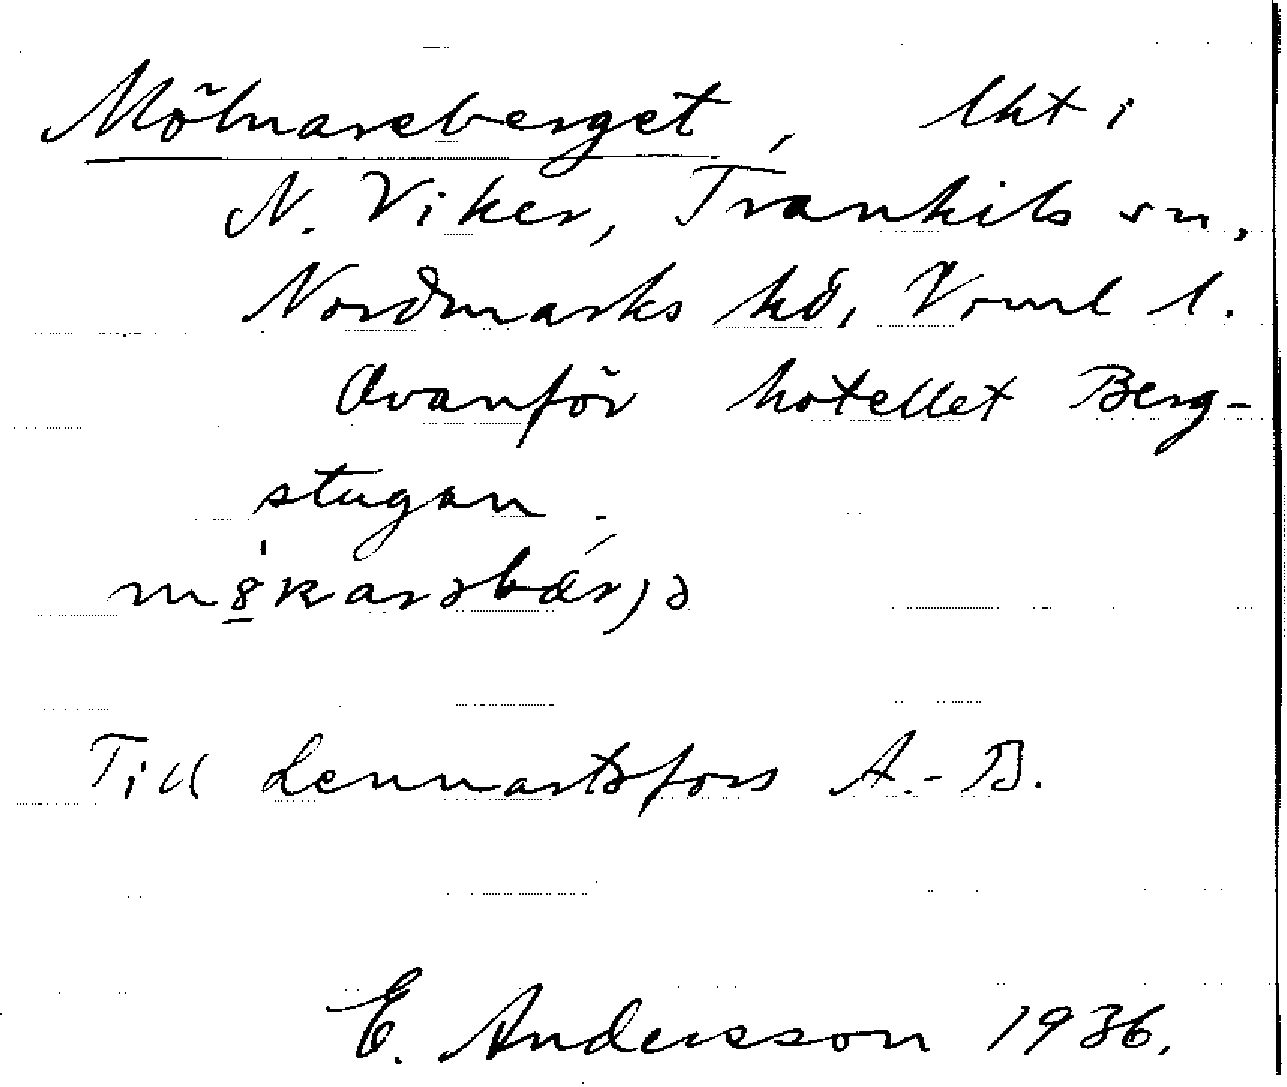 Mölnareberget, lht i
N. Viker, Trankils sn,
Nordmarks hd, Vrml l.
Ovanför hotellet Berg-
stugan.
Till Lennartsfors A.-B.
E. Andersson 1936.